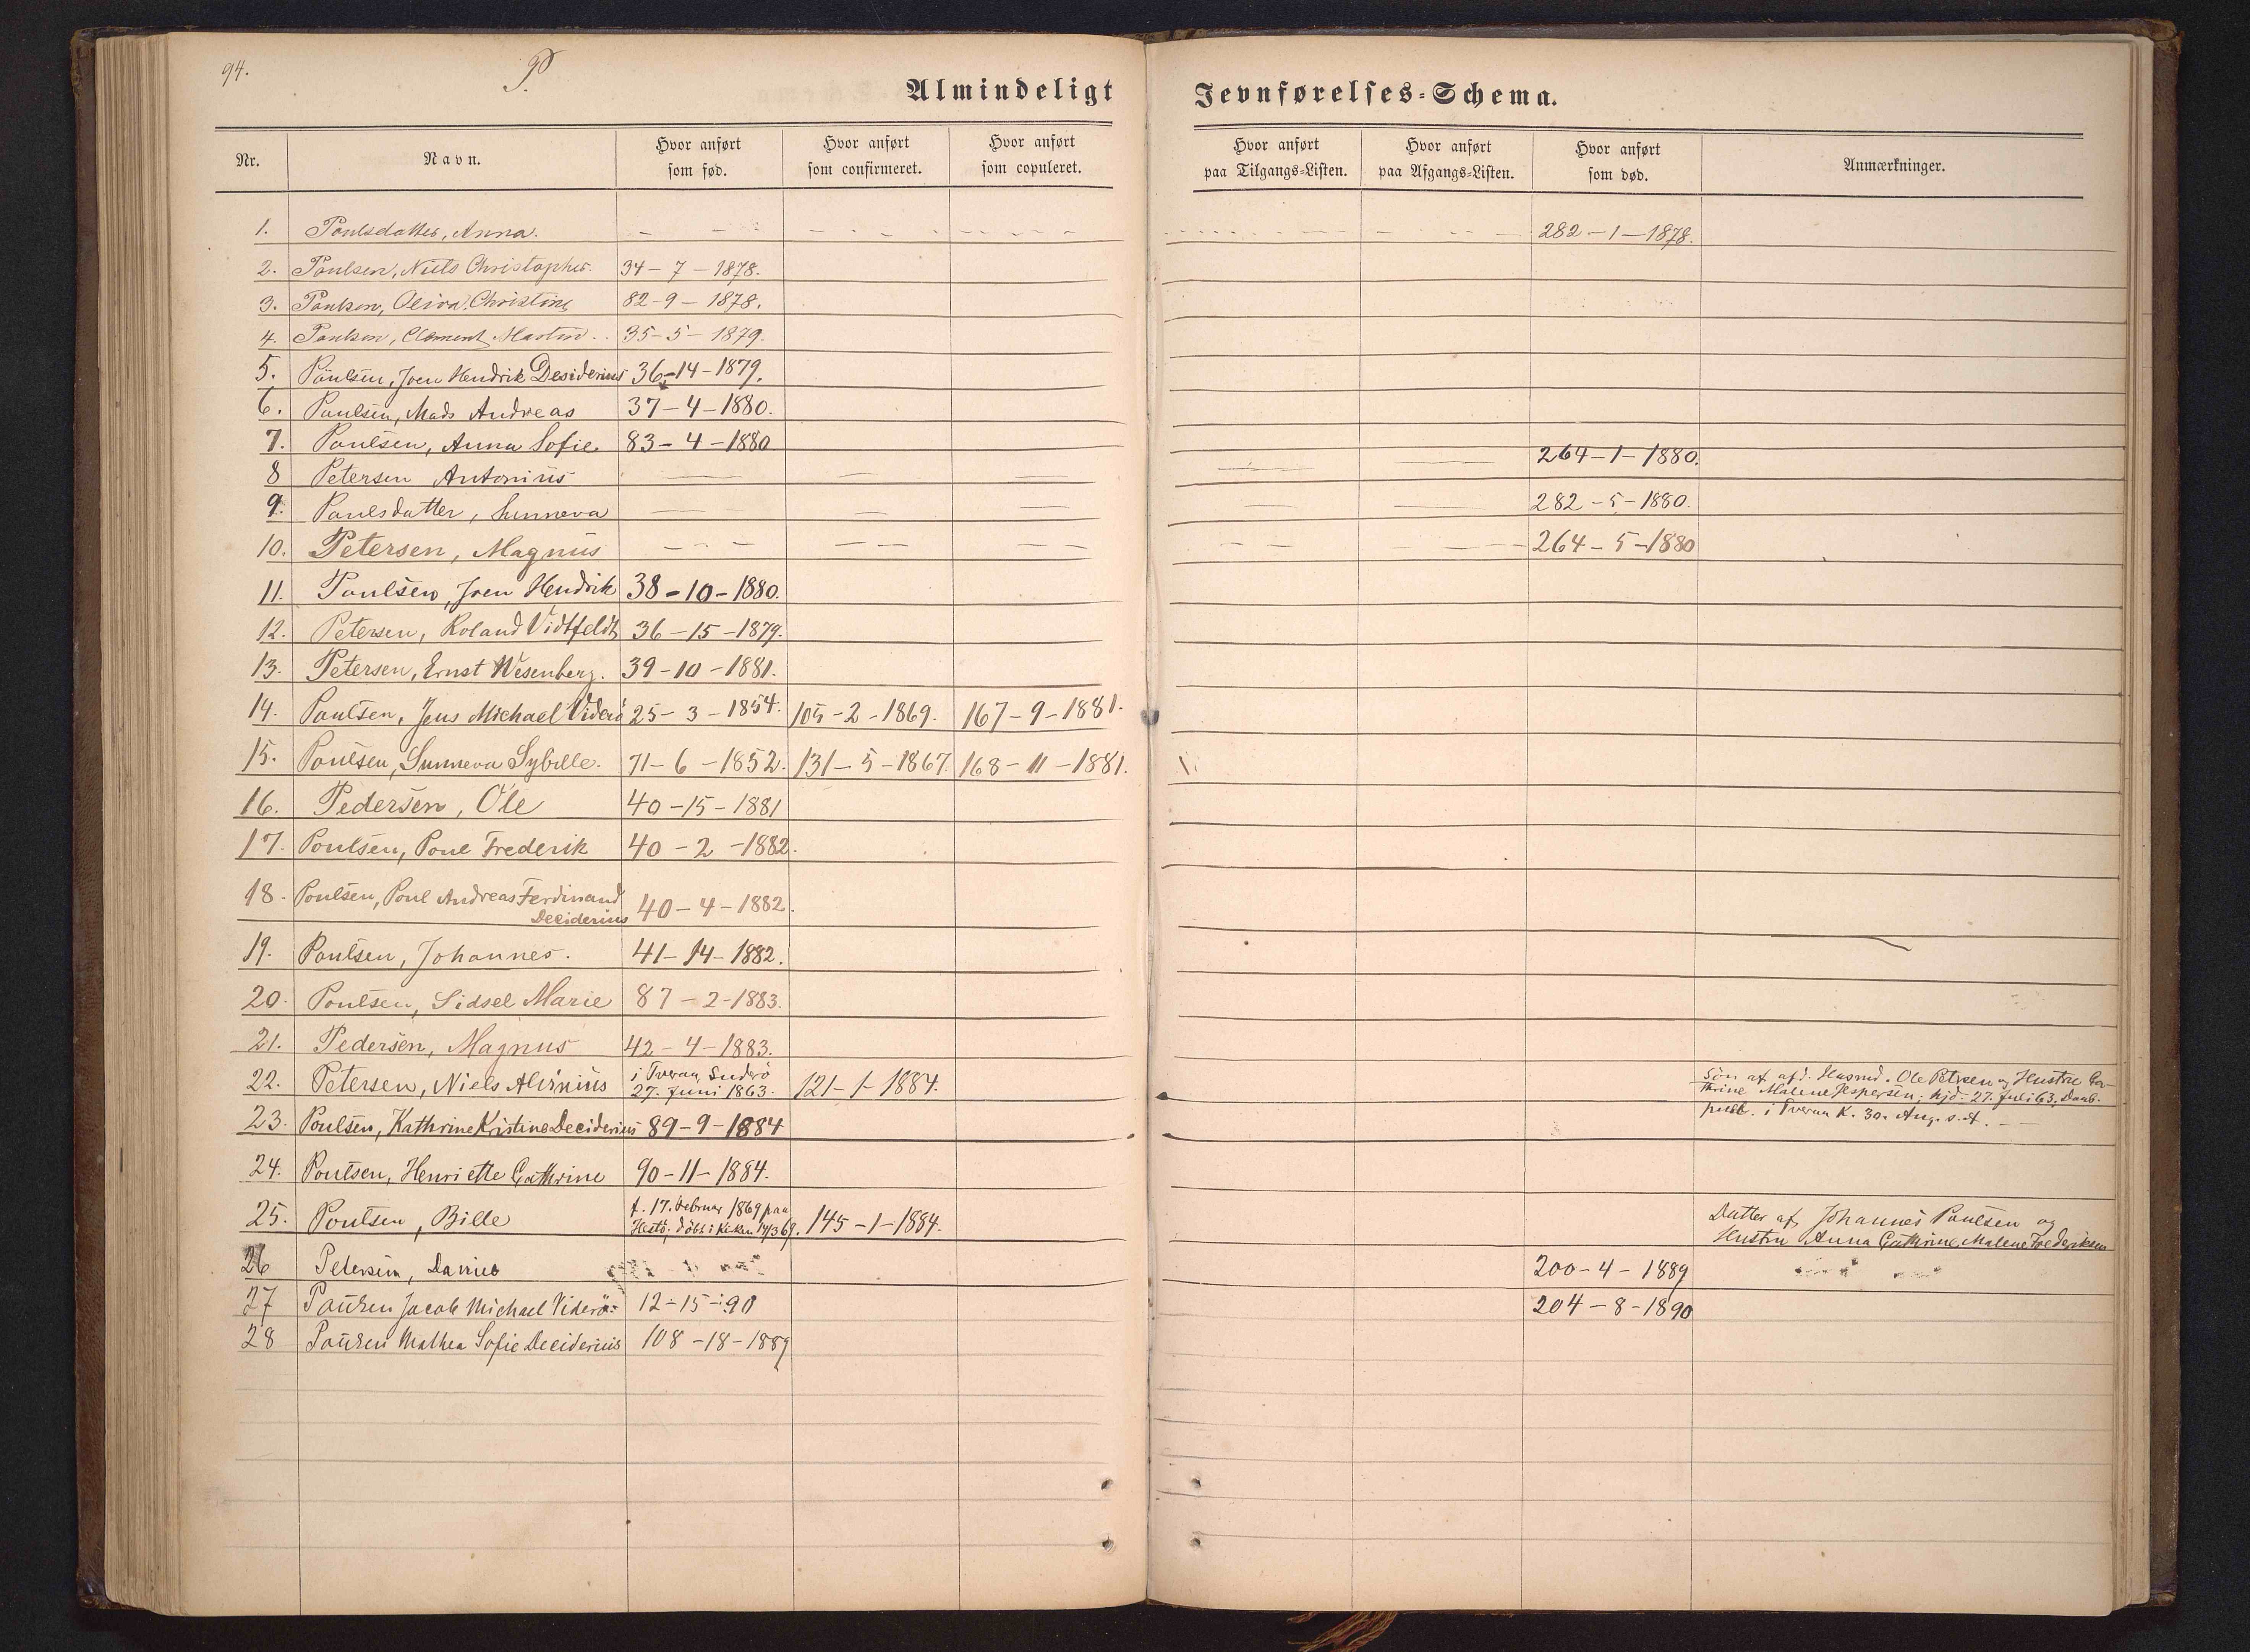 94.
P.
Almindeligt Jevnførelses-Schema.
Nr.
Navn.
Hvor anført
som fød.
Hvor anført
som confirmeret.
Hvor anført
som copuleret.
Hvor anført
paa Tilgangs-Listen.
Hvor anført
paa Afgangs-Listen.
Hvor anført
som død.
Anmærkninger.
1. Poulsdatter, Anna. 282-1-1878.
2. Poulsen, Niels Christopher. 34-7-1878.
3. Poulsen, Christine 82-9-1878.
4. Poulsen, Clement Martin 35-5-1879.
5. Poulsen, Joen Hendrik Desiderius 36-14-1879.
6. Poulsen, Mads Andreas 37-4-1880.
7. Poulsen, Anna Sofie. 83-4-1880
8 Petersen Antonius 264-1-1880.
9. Poulsdatter, Sunneva 282-5-1880.
10. Petersen, Magnus 264-5-1880
11. Poulsen, Joen Hendrik 38-10-1880.
12. Petersen, Roland Vidtfeldt 36-15-1879.
13. Petersen, Ernst Wesenberg. 39-10-1881.
14. Poulsen, Jens Michael Viderö 25-3-1854. 105-2-1869. 167-9-1881.
15. Poulsen, Sunneva Sybille. 71-6-1852. 131-5-1867. 168-11-1881.
16. Pedersen, Ole 40-15-1881
17. Poulsen, Poul Frederik 40-2-1882.
18. Poulsen, Poul Andreas Ferdinand
Deciderius 40-4-1882.
19. Poulsen, Johannes. 41-14-1882.
20. Poulsen, Sidsel Marie 87-2-1883.
21. Pedersen, Magnus 42-4-1883.
22. Petersen, Niels Alvinius i Tveraa, Suderö
27. Juni 1863. 121-1-1884.
Sön af afd. Husmd. Ole Petersen og Hustru Ca-
thrine Malene Jespersen; hjd. 27. Juli 63, Daab.
publ. i Tveraa K. 30. Aug. s. A.
23. Poulsen, Kathrine Kristine Deciderius 89-9-1884
24. Poulsen, Henriette Cathrine 90-11-1884.
25. Poulsen, Bille f. 17. Februar 1869 paa
Hestö; döbt i Kirken 14/3 69. 145-1-1884.
Datter af Johannes Poulsen og
Hustru Anna Cathrine Malene Frederiksen
26 Petersen, Daniel 200-4-1889
27 Poulsen Jacob Michael Viderö 12-15-90 204-8-1890
28 Poulsen Mathea Sofie Deciderius 108-18-1889